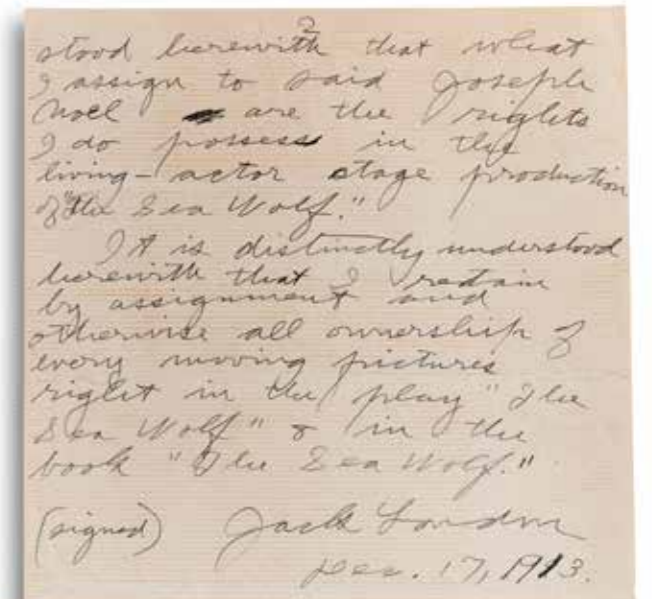 2
stood herewith that what
I assign to said Joseph
Noel are the rights
I do possess in the
living-actor stage production
of "The Sea Wolf."
It is distinctly understood
herewith that I retain
by assignment and
otherwise all ownership of
every moving pictures
right in the play "The
Sea Wolf" & in the
book "The Sea Wolf."
(signed) Jack London
Dec. 17, 1913.